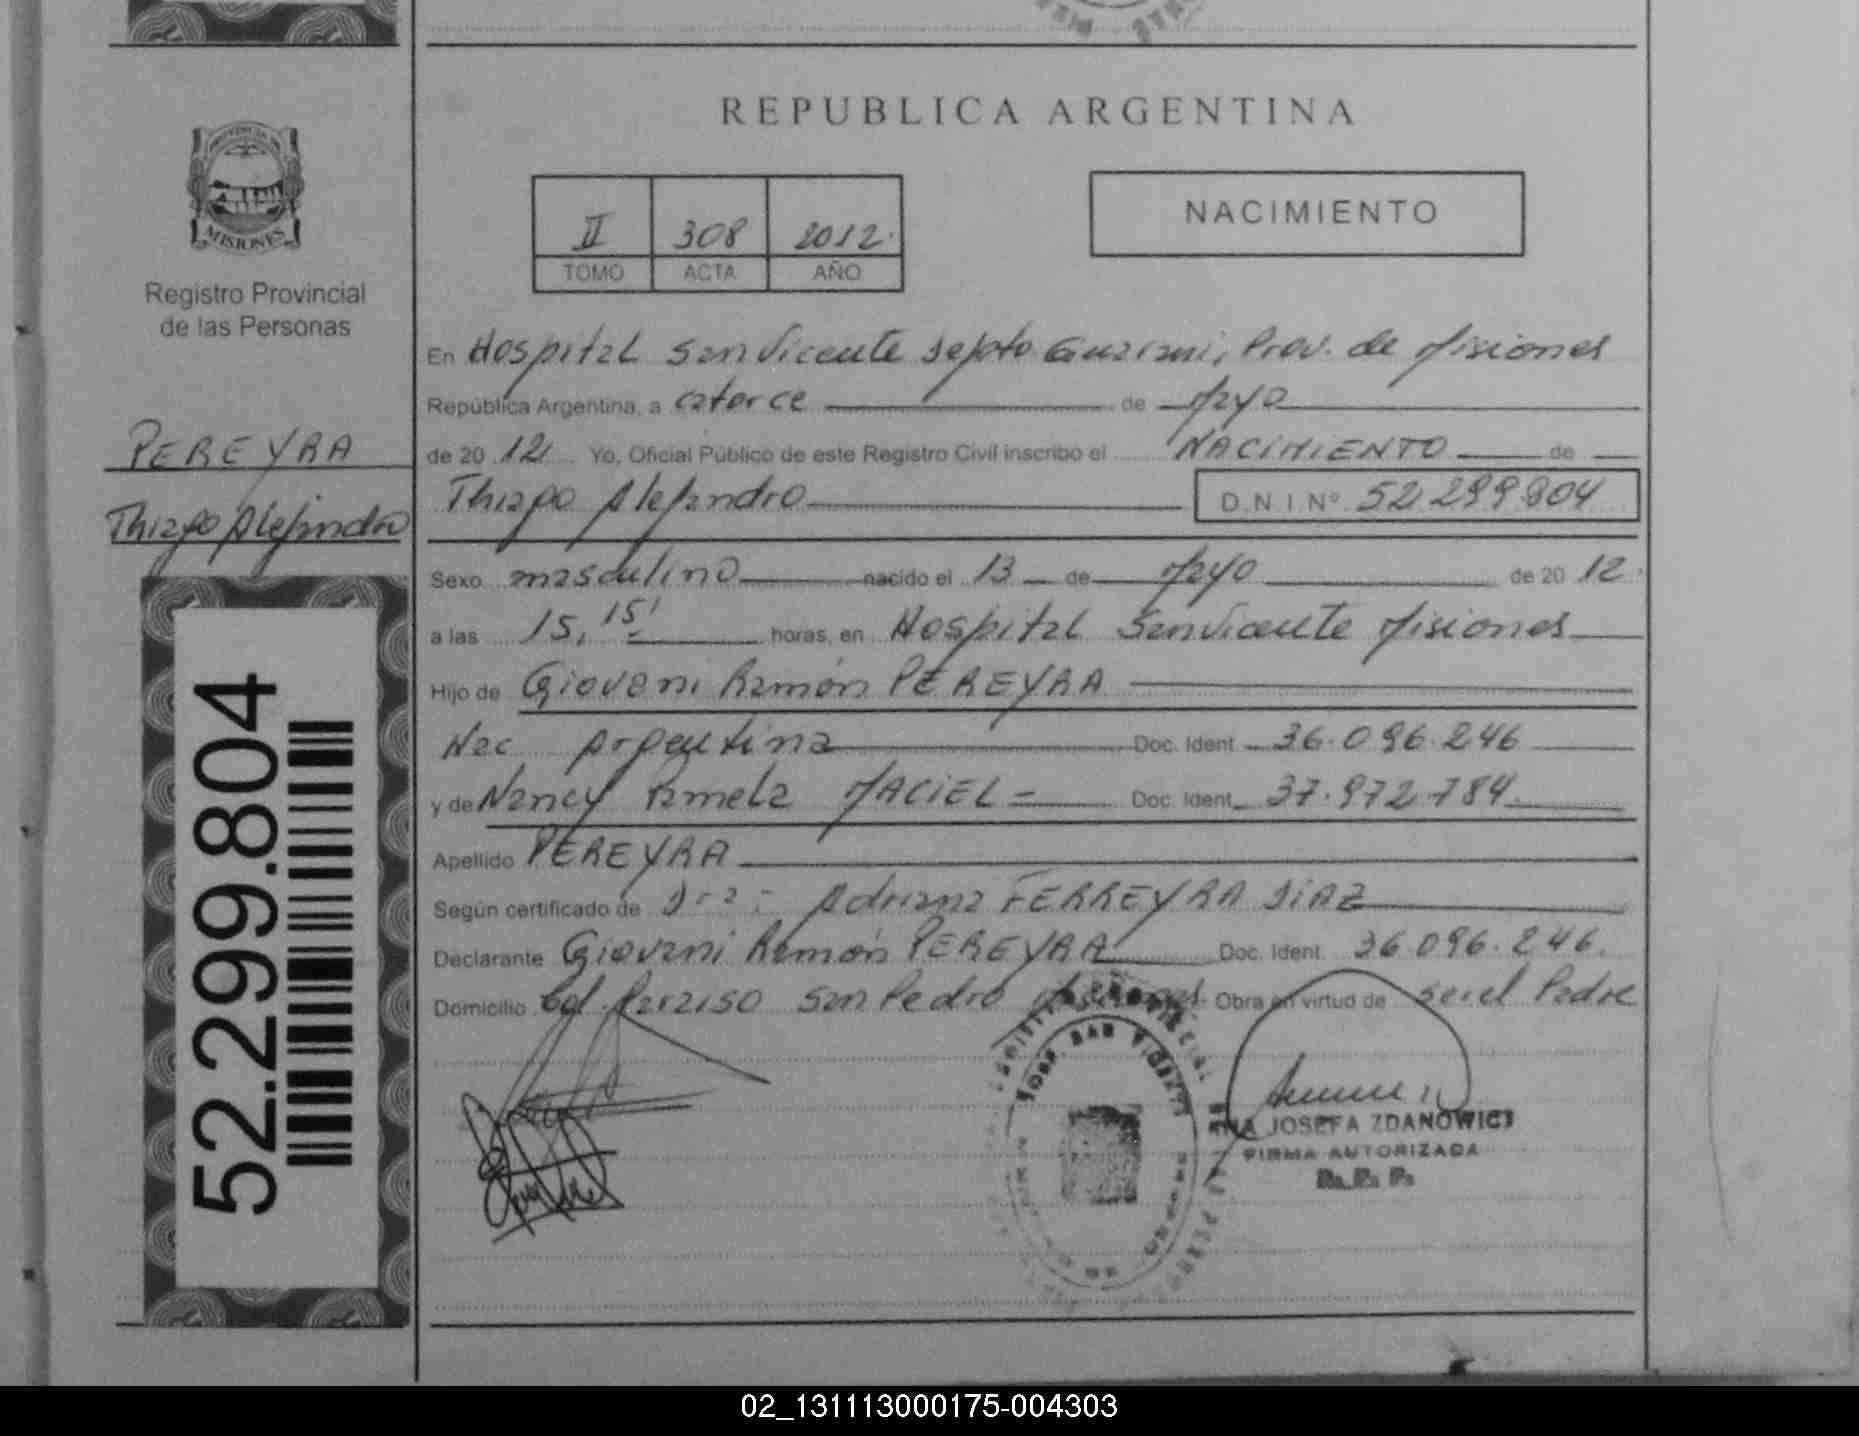 REPUBLICA ARGENTINA
II 308 2012.
TOMO ACTA AÑO
NACIMIENTO
MISIONES
Registro Provincial
de las Personas
PEREYRA
Thiago Alejandro
52.299.804
En Hospital San Vicente Depto Guarani, Prov. de Misiones
República Argentina, a catorce de Mayo
de 20 12 Yo, Oficial Público de este Registro Civil inscribo el NACIMIENTO de
Thiago Alejandro D.N.I.Nº 52.299.804
Sexo masculino nacido el 13 de Mayo de 20 12.
a las 15,15' horas, en Hospital San Vicente Misiones
Hijo de Giovani Ramón PEREYRA
Nac Argentina Doc. Ident 36.096.246
y de Nancy Pamela MACIEL = Doc. Ident 37.972.784.
Apellido PEREYRA
Según certificado de Dra: Adriana FERREYRA DIAZ
Declarante Giovani Ramón PEREYRA Doc. Ident. 36.096.246.
Domicilio Col. Paraiso San Pedro Misiones. Obra en virtud de ser el Padre
SAN VICENTE
JOSEFA ZDANOWICZ
FIRMA AUTORIZADA
R. P. P.
02_131113000175-004303